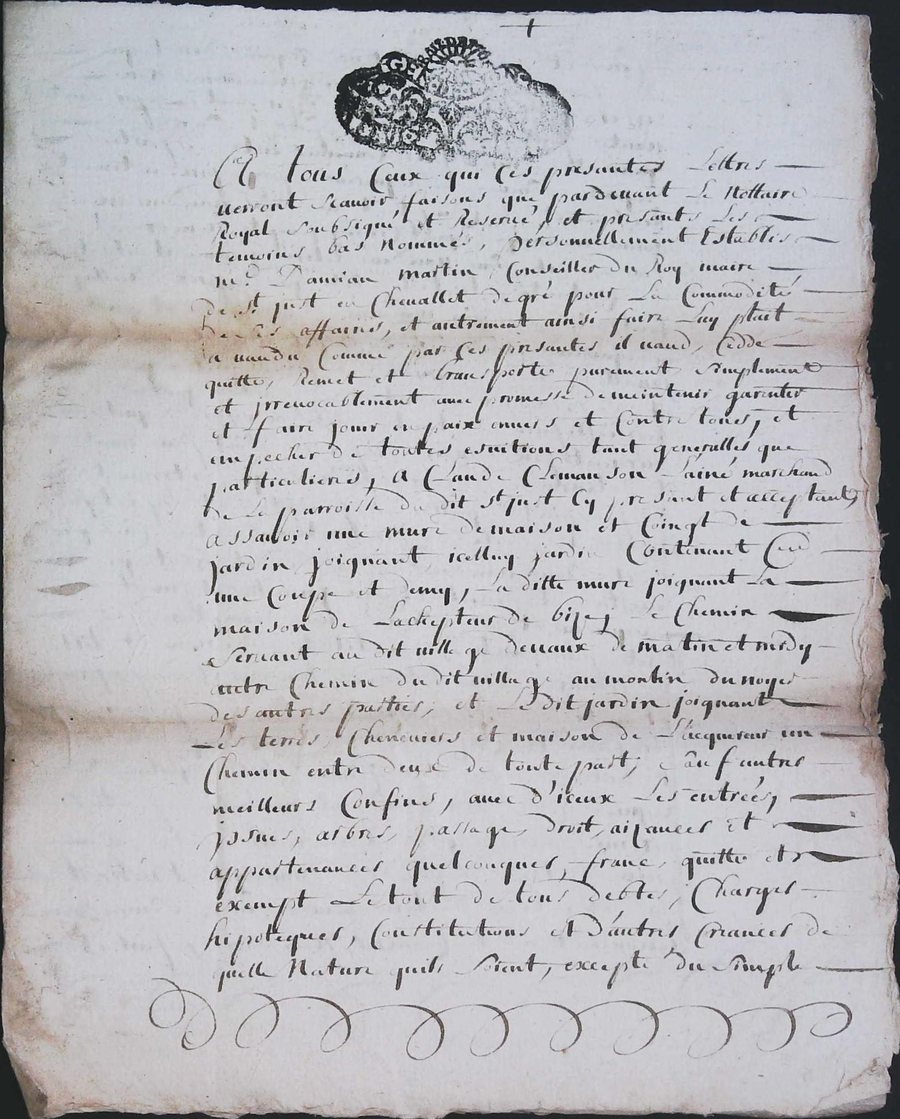 A tous Ceux qui Ces presantes Lettres
verront Scavoir faisons que pardevant Le Nottaire
Royal Soubsigné et Reservé, et presents Les
temoins bas Nommés, personnellement Establis
me. Damian martin, Conseiller Du Roy maire
De st just en Chevallet de gré pour La Commodité
De Ses affairs, et autrement ainsi faire Luy plait
a vandu Comme par Ces presantes il vand, Cedde
quitte, Remet et transporte purement Simplement
et jrrevocablement avec promesse De meintenir garentir
et faire jouir en paix envers et Contre tous, et
empecher de toutes esvitions tant generalles que
particulieres, A Claude Clemanson l'ainé marchand
De La parroisse du dit st just Cy presant et acceptant,
assavoir une mure de maison et Coingt de
jardin joignant, icelluy jardin Contenant
une Coupe et demy, La ditte mure joignant La
maison de Lachepteur de bize, Le Chemin
Servant au dit village devaux de matin et midy
autre Chemin du dit village au moulin du noyer
des autres parties, et Le dit jardin joignant
Les terres, Cheneviers et maison de L'acquereur un
Chemin entre deux de toute part, Sauf autres
meilleurs Confins, avec d'iceux Les entrées,
jssues, arbres, passage, droit, aizances et
appartenances quelconques, franc, quitte et
exempt Le tout de tous debtes, Charges
hipoteques, Constitutions et D'autres Creances de
quelle Nature quils Soient, excepté du Simple